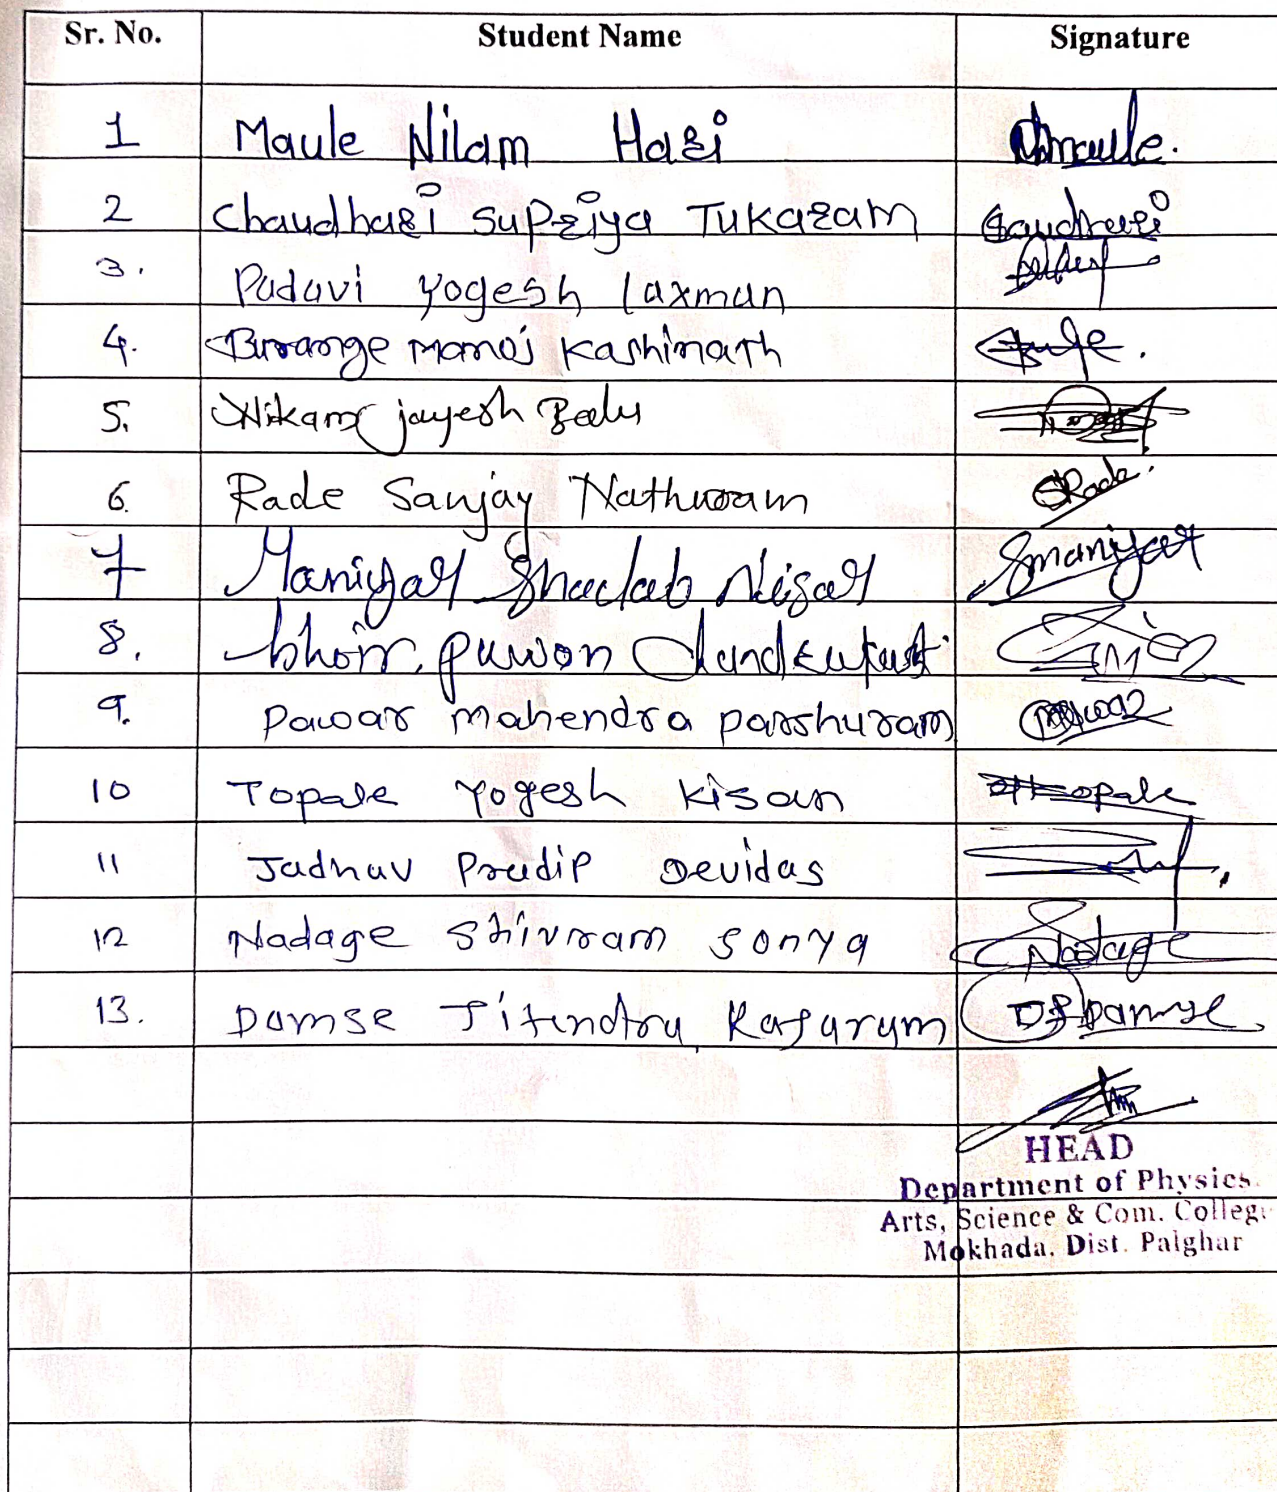 Sr. No. Student Name Signature
1 Maule Nilam Hari Nmaule.
2 Chaudhari Supriya Tukaram Caudhari
3. Padavi Yogesh laxman
4. Burange Manoj Kashinath
5. Nikam jayesh Balu
6. Rade Sanjay Nathuram Rade.
7 Maniyar Shadab Nisar Smaniyar
8. bhoir pawan
9. Pawar mahendra parshuram
10 Topale Yogesh Kisan
11 Jadhav Pradip Devidas
12 Nadage Shivram Sonya Nadage
13. Damse Jitendra Rajaram Damse
HEAD
Department of Physics
Arts, Science & Com. College
Mokhada, Dist. Palghar